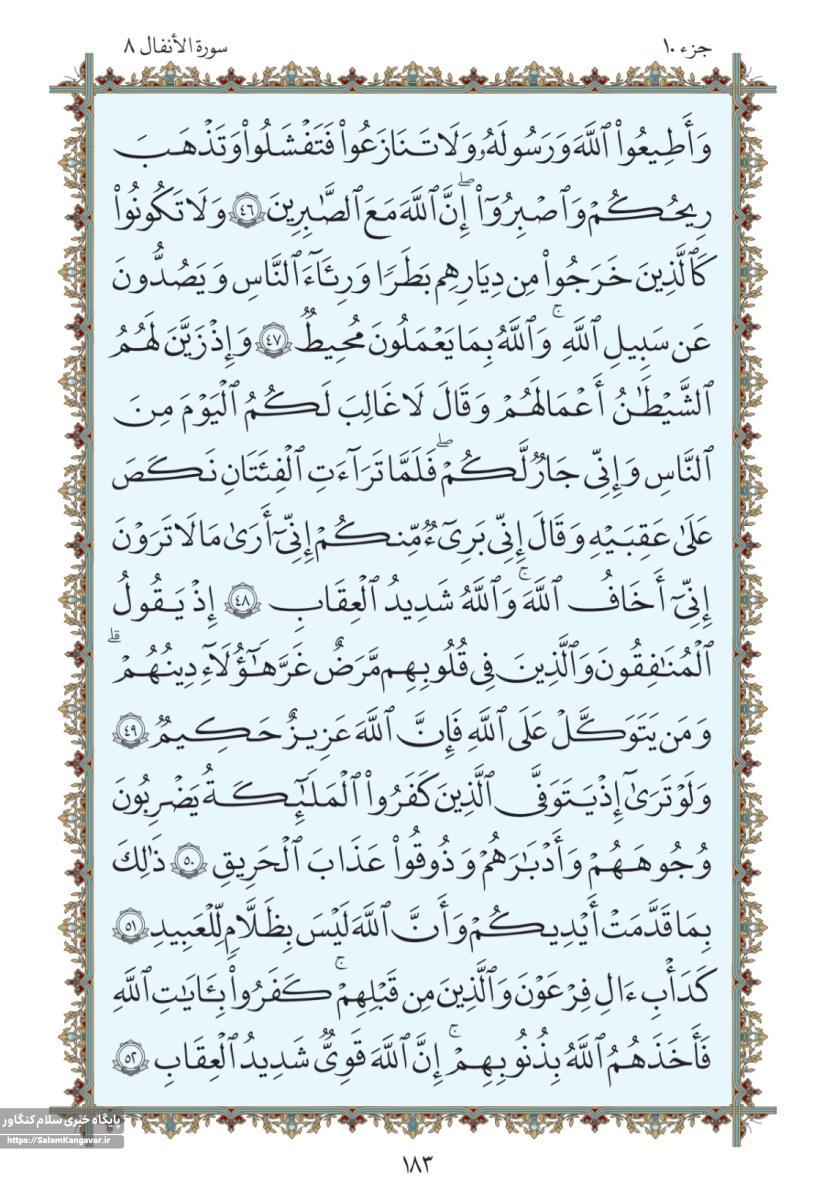 جزء ١٠
سورة الأنفال ٨
وَأَطِيعُواْ ٱللَّهَ وَرَسُولَهُۥ وَلَا تَنَازَعُواْ فَتَفْشَلُواْ وَتَذْهَبَ
رِيحُكُمْ وَٱصْبِرُوٓاْ ۖ إِنَّ ٱللَّهَ مَعَ ٱلصَّٰبِرِينَ ٤٦ وَلَا تَكُونُواْ
كَٱلَّذِينَ خَرَجُواْ مِن دِيَارِهِم بَطَرًا وَرِئَآءَ ٱلنَّاسِ وَيَصُدُّونَ
عَن سَبِيلِ ٱللَّهِ ۚ وَٱللَّهُ بِمَا يَعْمَلُونَ مُحِيطٌ ٤٧ وَإِذْ زَيَّنَ لَهُمُ
ٱلشَّيْطَٰنُ أَعْمَالَهُمْ وَقَالَ لَا غَالِبَ لَكُمُ ٱلْيَوْمَ مِنَ
ٱلنَّاسِ وَإِنِّى جَارٌ لَّكُمْ ۖ فَلَمَّا تَرَآءَتِ ٱلْفِئَتَانِ نَكَصَ
عَلَىٰ عَقِبَيْهِ وَقَالَ إِنِّى بَرِىٓءٌ مِّنكُمْ إِنِّىٓ أَرَىٰ مَا لَا تَرَوْنَ
إِنِّىٓ أَخَافُ ٱللَّهَ ۚ وَٱللَّهُ شَدِيدُ ٱلْعِقَابِ ٤٨ إِذْ يَقُولُ
ٱلْمُنَٰفِقُونَ وَٱلَّذِينَ فِى قُلُوبِهِم مَّرَضٌ غَرَّ هَٰٓؤُلَآءِ دِينُهُمْ ۗ
وَمَن يَتَوَكَّلْ عَلَى ٱللَّهِ فَإِنَّ ٱللَّهَ عَزِيزٌ حَكِيمٌ ٤٩
وَلَوْ تَرَىٰٓ إِذْ يَتَوَفَّى ٱلَّذِينَ كَفَرُواْ ٱلْمَلَٰٓئِكَةُ يَضْرِبُونَ
وُجُوهَهُمْ وَأَدْبَٰرَهُمْ وَذُوقُواْ عَذَابَ ٱلْحَرِيقِ ٥٠ ذَٰلِكَ
بِمَا قَدَّمَتْ أَيْدِيكُمْ وَأَنَّ ٱللَّهَ لَيْسَ بِظَلَّٰمٍ لِّلْعَبِيدِ ٥١
كَدَأْبِ ءَالِ فِرْعَوْنَ وَٱلَّذِينَ مِن قَبْلِهِمْ ۚ كَفَرُواْ بِـَٔايَٰتِ ٱللَّهِ
فَأَخَذَهُمُ ٱللَّهُ بِذُنُوبِهِمْ ۚ إِنَّ ٱللَّهَ قَوِىٌّ شَدِيدُ ٱلْعِقَابِ ٥٢
پایگاه خبری سلام کنگاور
https://SalamKangavar.ir
١٨٣